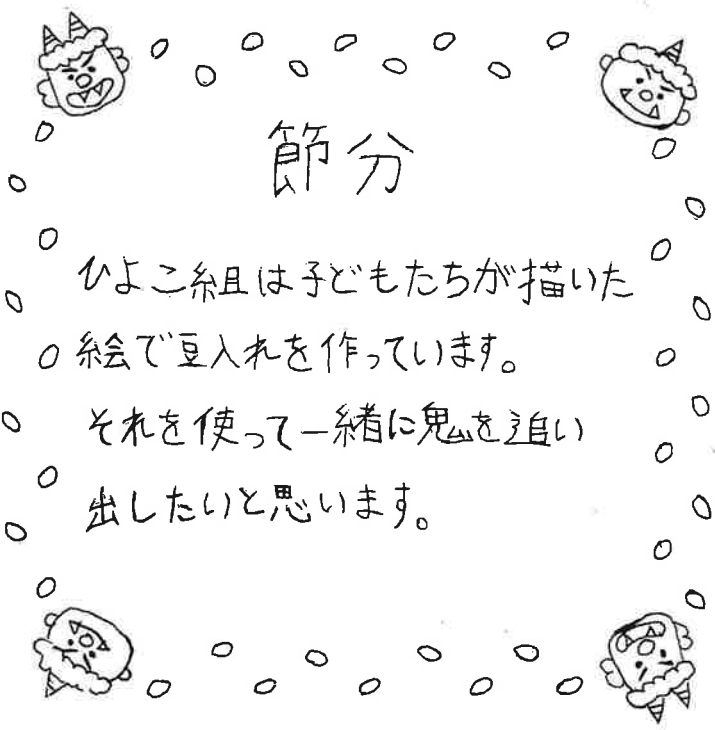 節分
ひよこ組は子どもたちが描いた
絵で豆入れを作っています。
それを使って一緒に鬼を追い
出したいと思います。